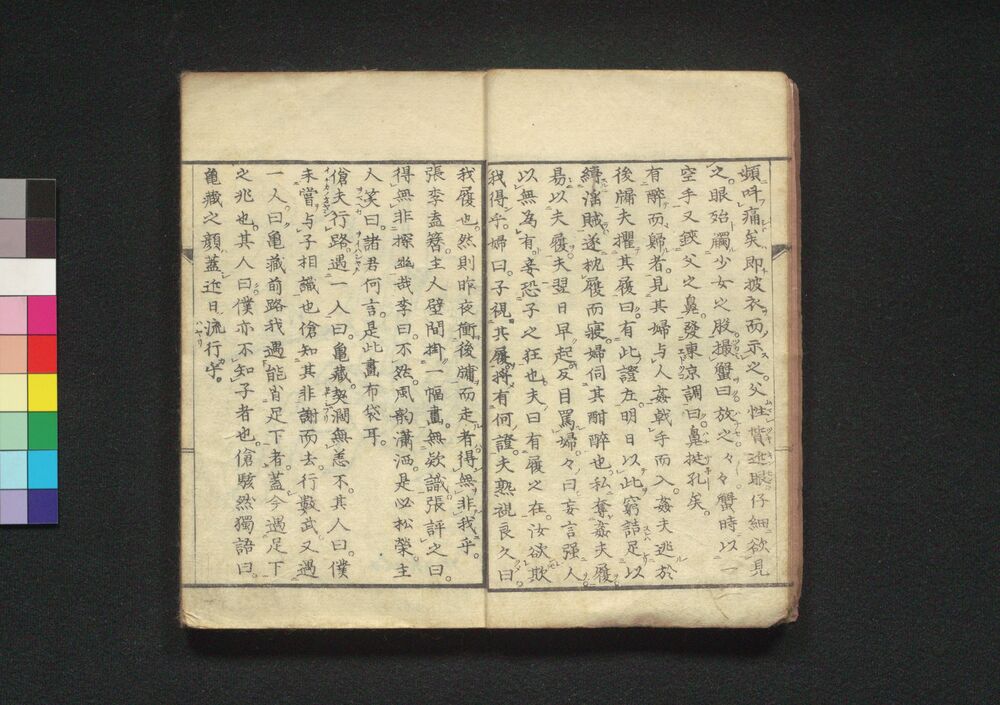 頻呼痛矣即披衣而示之父性質近眼仔細欲見
之眼殆觸少女之股撮蟹曰放之々々蟹時以一
空手又鋏父之鼻發東涼調曰鼻挺孔矣
有醉而歸者見其婦与人姦戟手而入姦夫逃於
後牗夫擢其履曰有此證左明日以此窮詰足以
縛淫賊遂枕履而寢婦伺其酣醉也私奪姦夫履
易以夫履夫翌日早起反目罵婦々曰妄言强人
以無為有妾恐子之狂也夫曰有履之在汝欲欺
我得乎婦曰子視其履將有何證夫熟視良久曰
我履也然則昨夜衝後牗而走者得無非我乎
張李盍簪主人壁間掛一幅畫無欵識張評之曰
得無非探幽哉李曰不然風韵瀟洒是必松榮主
人笑曰諸君何言是此畫布袋耳
傖夫行路遇一人曰亀藏契濶無恙不其人曰僕
未嘗与子相識也傖知其非謝而去行數武又遇
一人曰亀藏前路我遇能肖足下者蓋今遇足下
之兆也其人曰僕亦不知子者也傖駭然獨語曰
亀藏之顏蓋近日流行乎